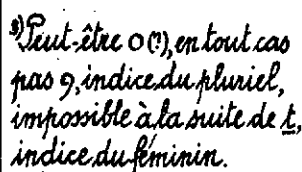 ³)Peut-être o(?), en tout cas
pas 9, indice du pluriel,
impossible à la suite de t,
indice du féminin.